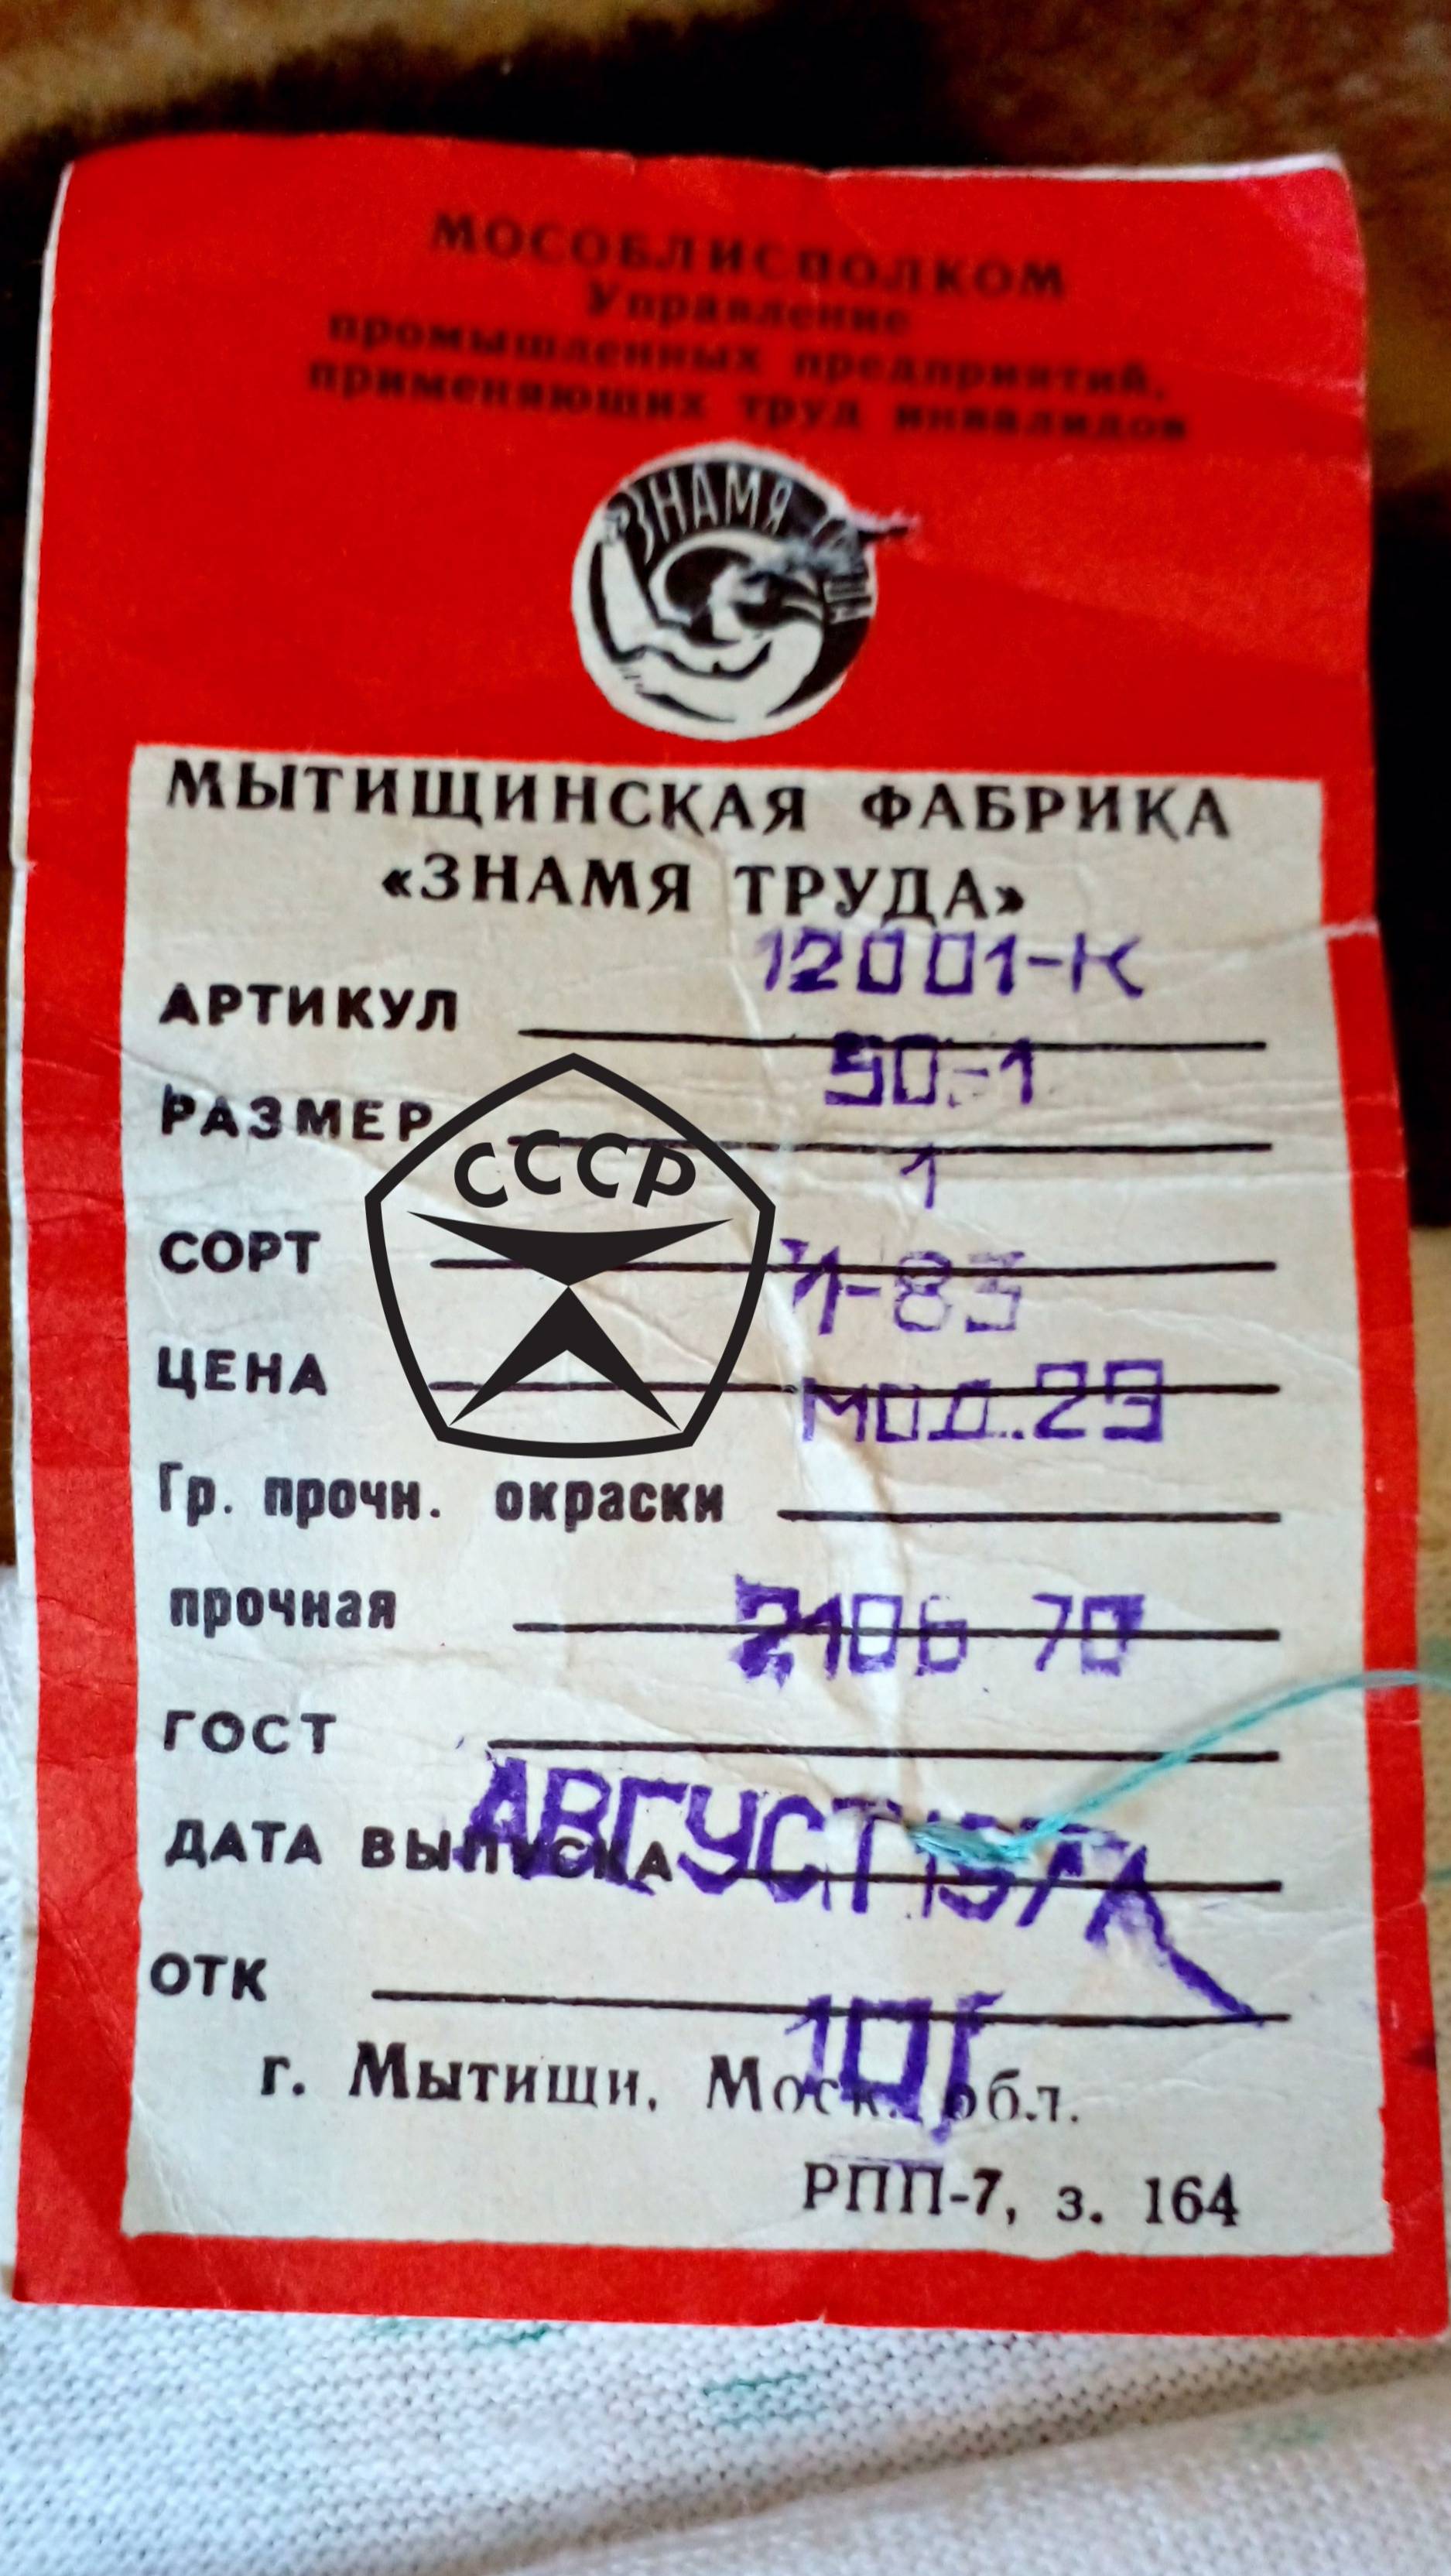 МОСОБЛИСПОЛКОМ
Управление
промышленных предприятий,
применяющих труд инвалидов
ЗНАМЯ
МЫТИЩИНСКАЯ ФАБРИКА
«ЗНАМЯ ТРУДА»
12001-К
АРТИКУЛ
50-1
РАЗМЕР
СССР
1
СОРТ
1-83
ЦЕНА
МОД.29
Гр. прочн. окраски
прочная
2106 70
ГОСТ
ДАТА ВЫПУСКА АВГУСТ
ОТК
г. Мытищи, Моск. обл.
РПП-7, з. 164